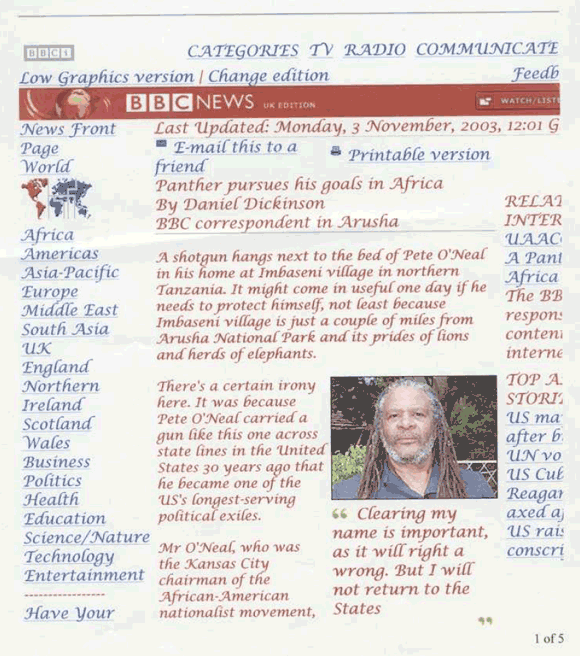 BBC1
CATEGORIES TV RADIO COMMUNICATE
Low Graphics version | Change edition
Feedb
BBC NEWS UK EDITION
WATCH/LISTE
News Front
Page
World
Africa
Americas
Asia-Pacific
Europe
Middle East
South Asia
UK
England
Northern
Ireland
Scotland
Wales
Business
Politics
Health
Education
Science/Nature
Technology
Entertainment
----------------
Have Your
Last Updated: Monday, 3 November, 2003, 12:01 G
E-mail this to a
friend
Printable version
Panther pursues his goals in Africa
By Daniel Dickinson
BBC correspondent in Arusha
A shotgun hangs next to the bed of Pete O'Neal
in his home at Imbaseni village in northern
Tanzania. It might come in useful one day if he
needs to protect himself, not least because
Imbaseni village is just a couple of miles from
Arusha National Park and its prides of lions
and herds of elephants.
There's a certain irony
here. It was because
Pete O'Neal carried a
gun like this one across
state lines in the United
States 30 years ago that
he became one of the
US's longest-serving
political exiles.
Mr O'Neal, who was
the Kansas City
chairman of the
African-American
nationalist movement,
“ Clearing my
name is important,
as it will right a
wrong. But I will
not return to the
States
”
RELAT
INTER
UAAC
A Pant
Africa
The BB
respons
conten
interne
TOP A
STORI
US ma
after b
UN vo
US Cub
Reagan
axed aj
US rais
conscri
1 of 5